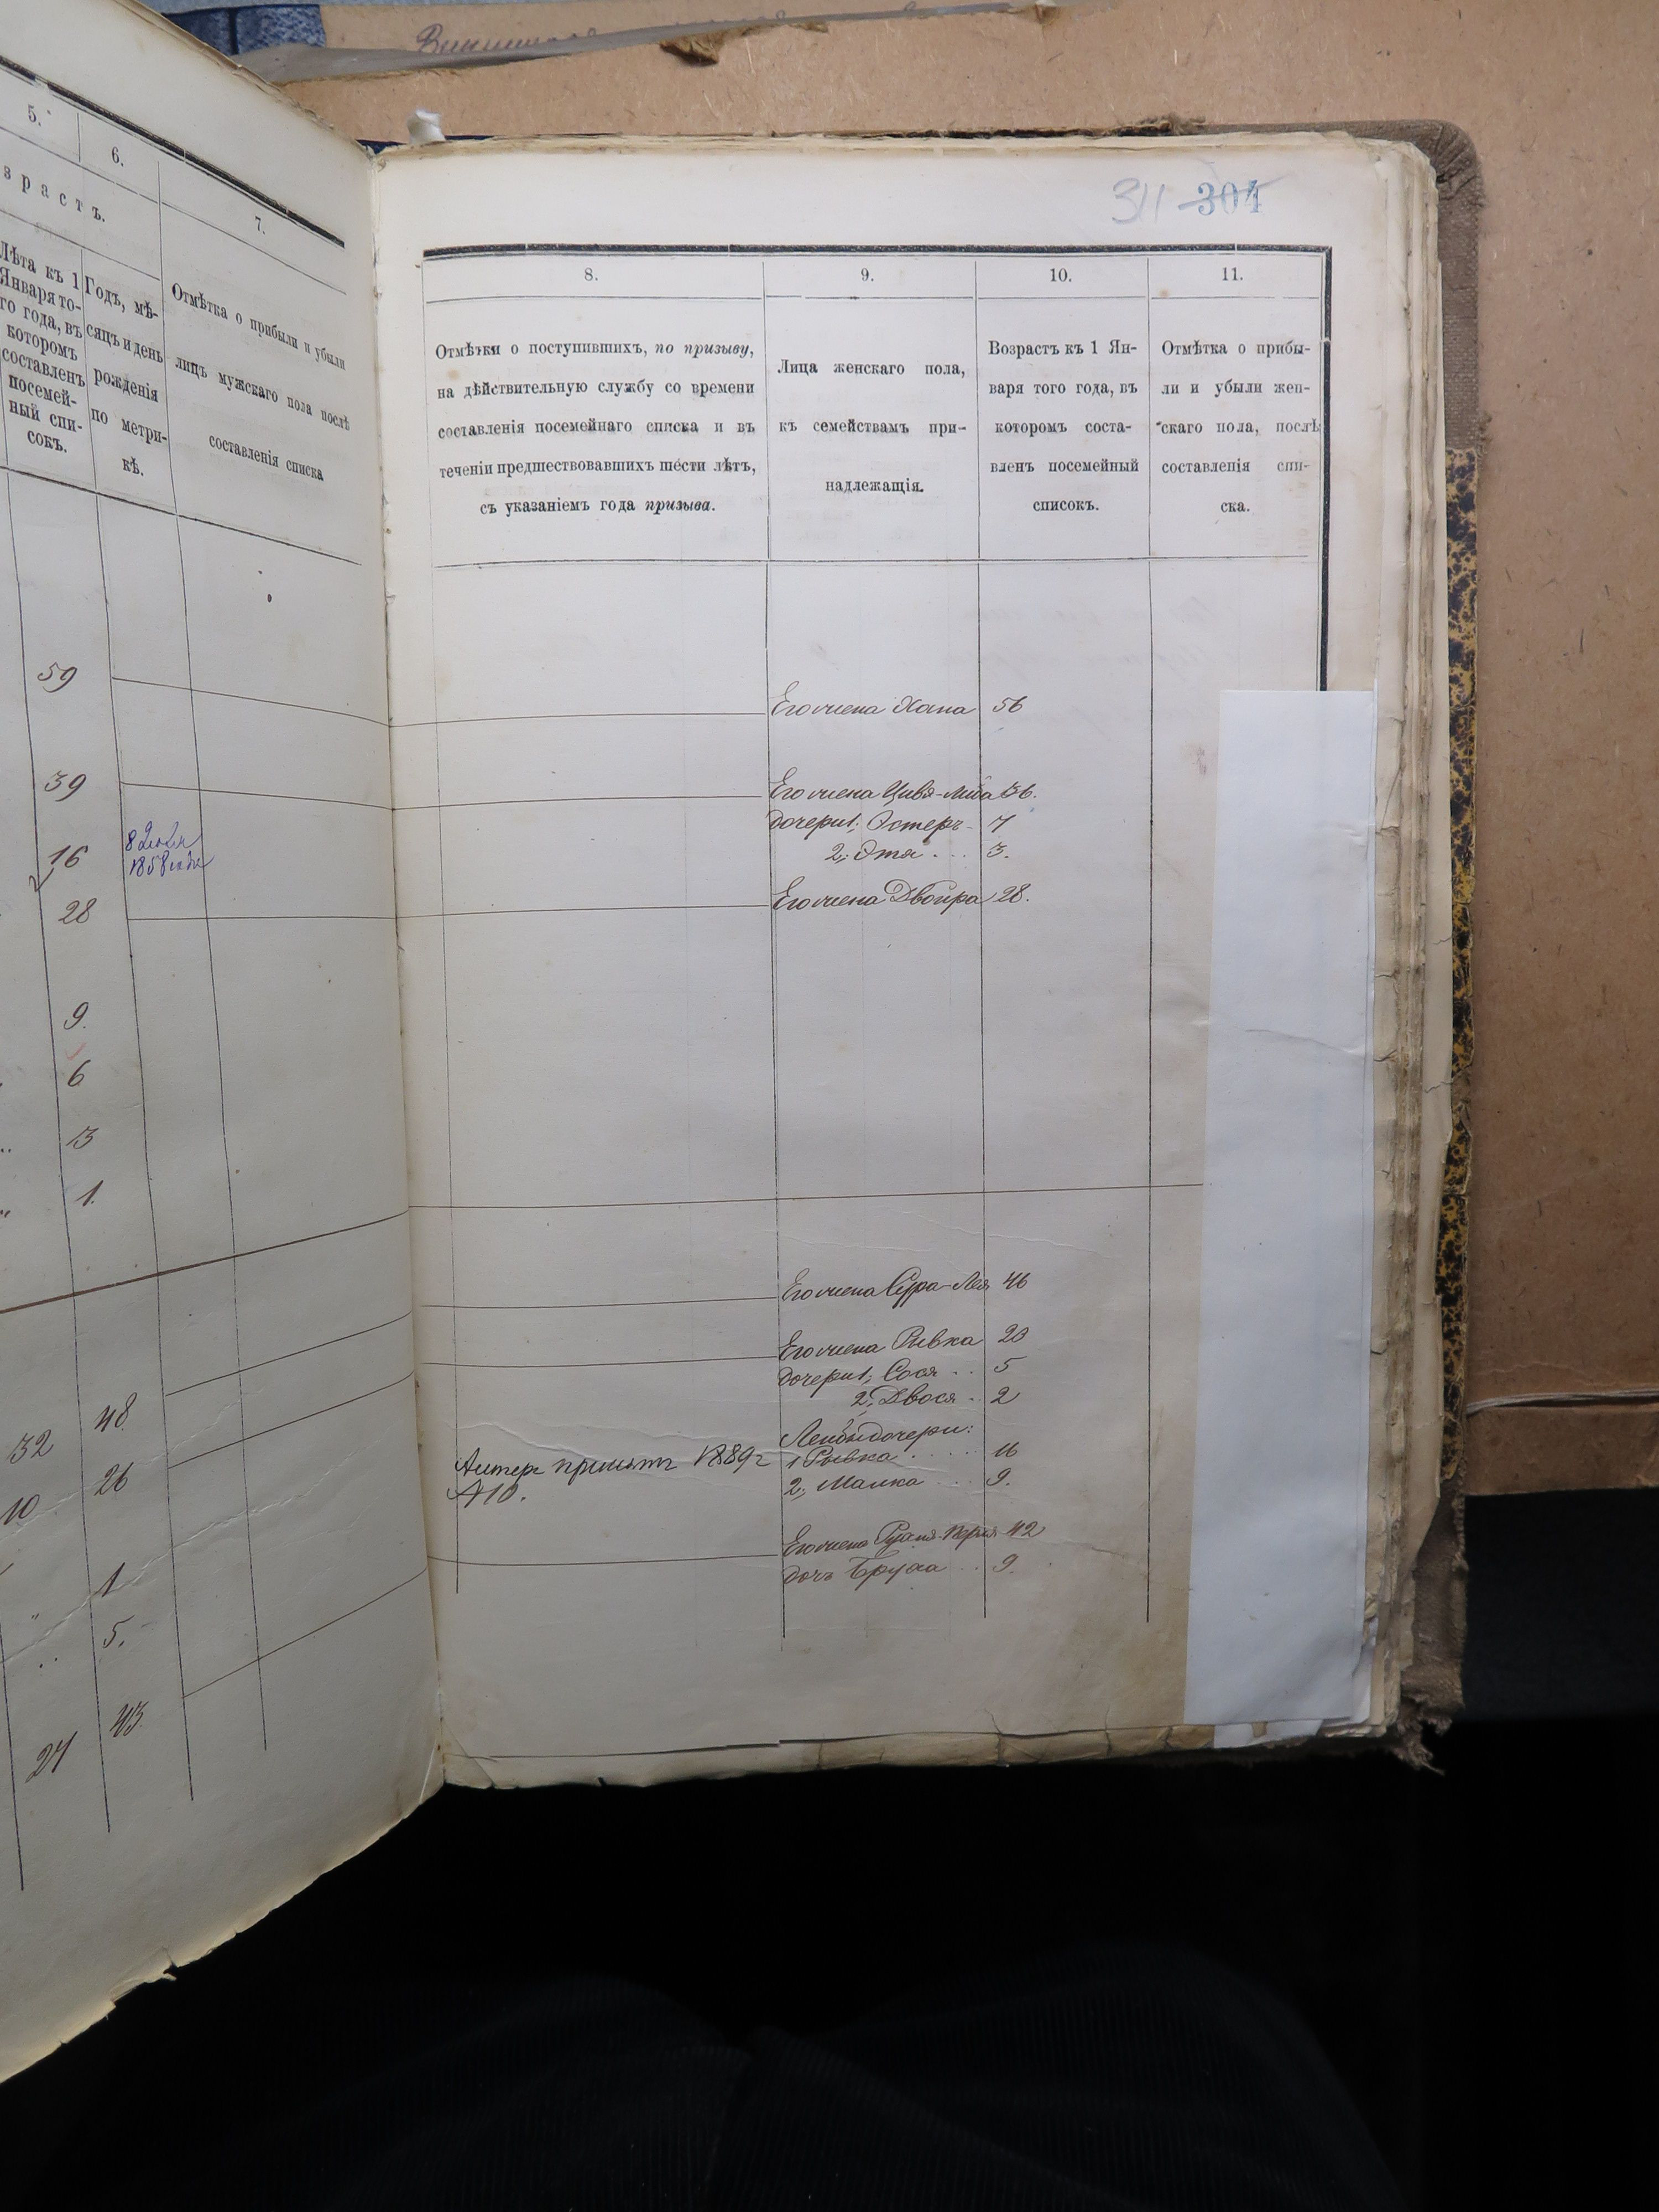 5.
6.
7.
зрастъ.
Лѣта къ 1
Января то-
го года, въ
которомъ
составленъ
посемей-
ный спи-
сокъ.
Годъ, мѣ-
сяцъ и день
рожденія
по метри-
кѣ.
Отмѣтка о прибыли и убыли
лицъ мужскаго пола послѣ
составленія списка
59
39
16
8 Іюля
1858 года
28
9.
6
13
1.
32
48
10
26
1
5.
27
43
311 304
8.
9.
10.
11.
Отмѣтки о поступившихъ, по призыву,
на дѣйствительную службу со времени
составленія посемейнаго списка и въ
теченіи предшествовавшихъ шести лѣтъ,
съ указаніемъ года призыва.
Лица женскаго пола,
къ семействамъ при-
надлежащія.
Возрастъ къ 1 Ян-
варя того года, въ
которомъ соста-
вленъ посемейный
списокъ.
Отмѣтка о прибы-
ли и убыли жен-
скаго пола, послѣ
составленія спи-
ска.
Его жена Хана 56
Его жена Цивя-Либа 36.
дочери 1, Эстеръ - 7
2, Этя . . . 3.
Его жена Двойра 28.
Его жена Сура-Лея 46
Его жена Рывка 20
дочери 1, Сося . . 5
2, Двося . 2
Лейбы дочери:
1 Рывка . . . . . 16
2, Малка . . . 9.
Его жена 42
дочь Бруха . . 9.
принятъ 1889 г